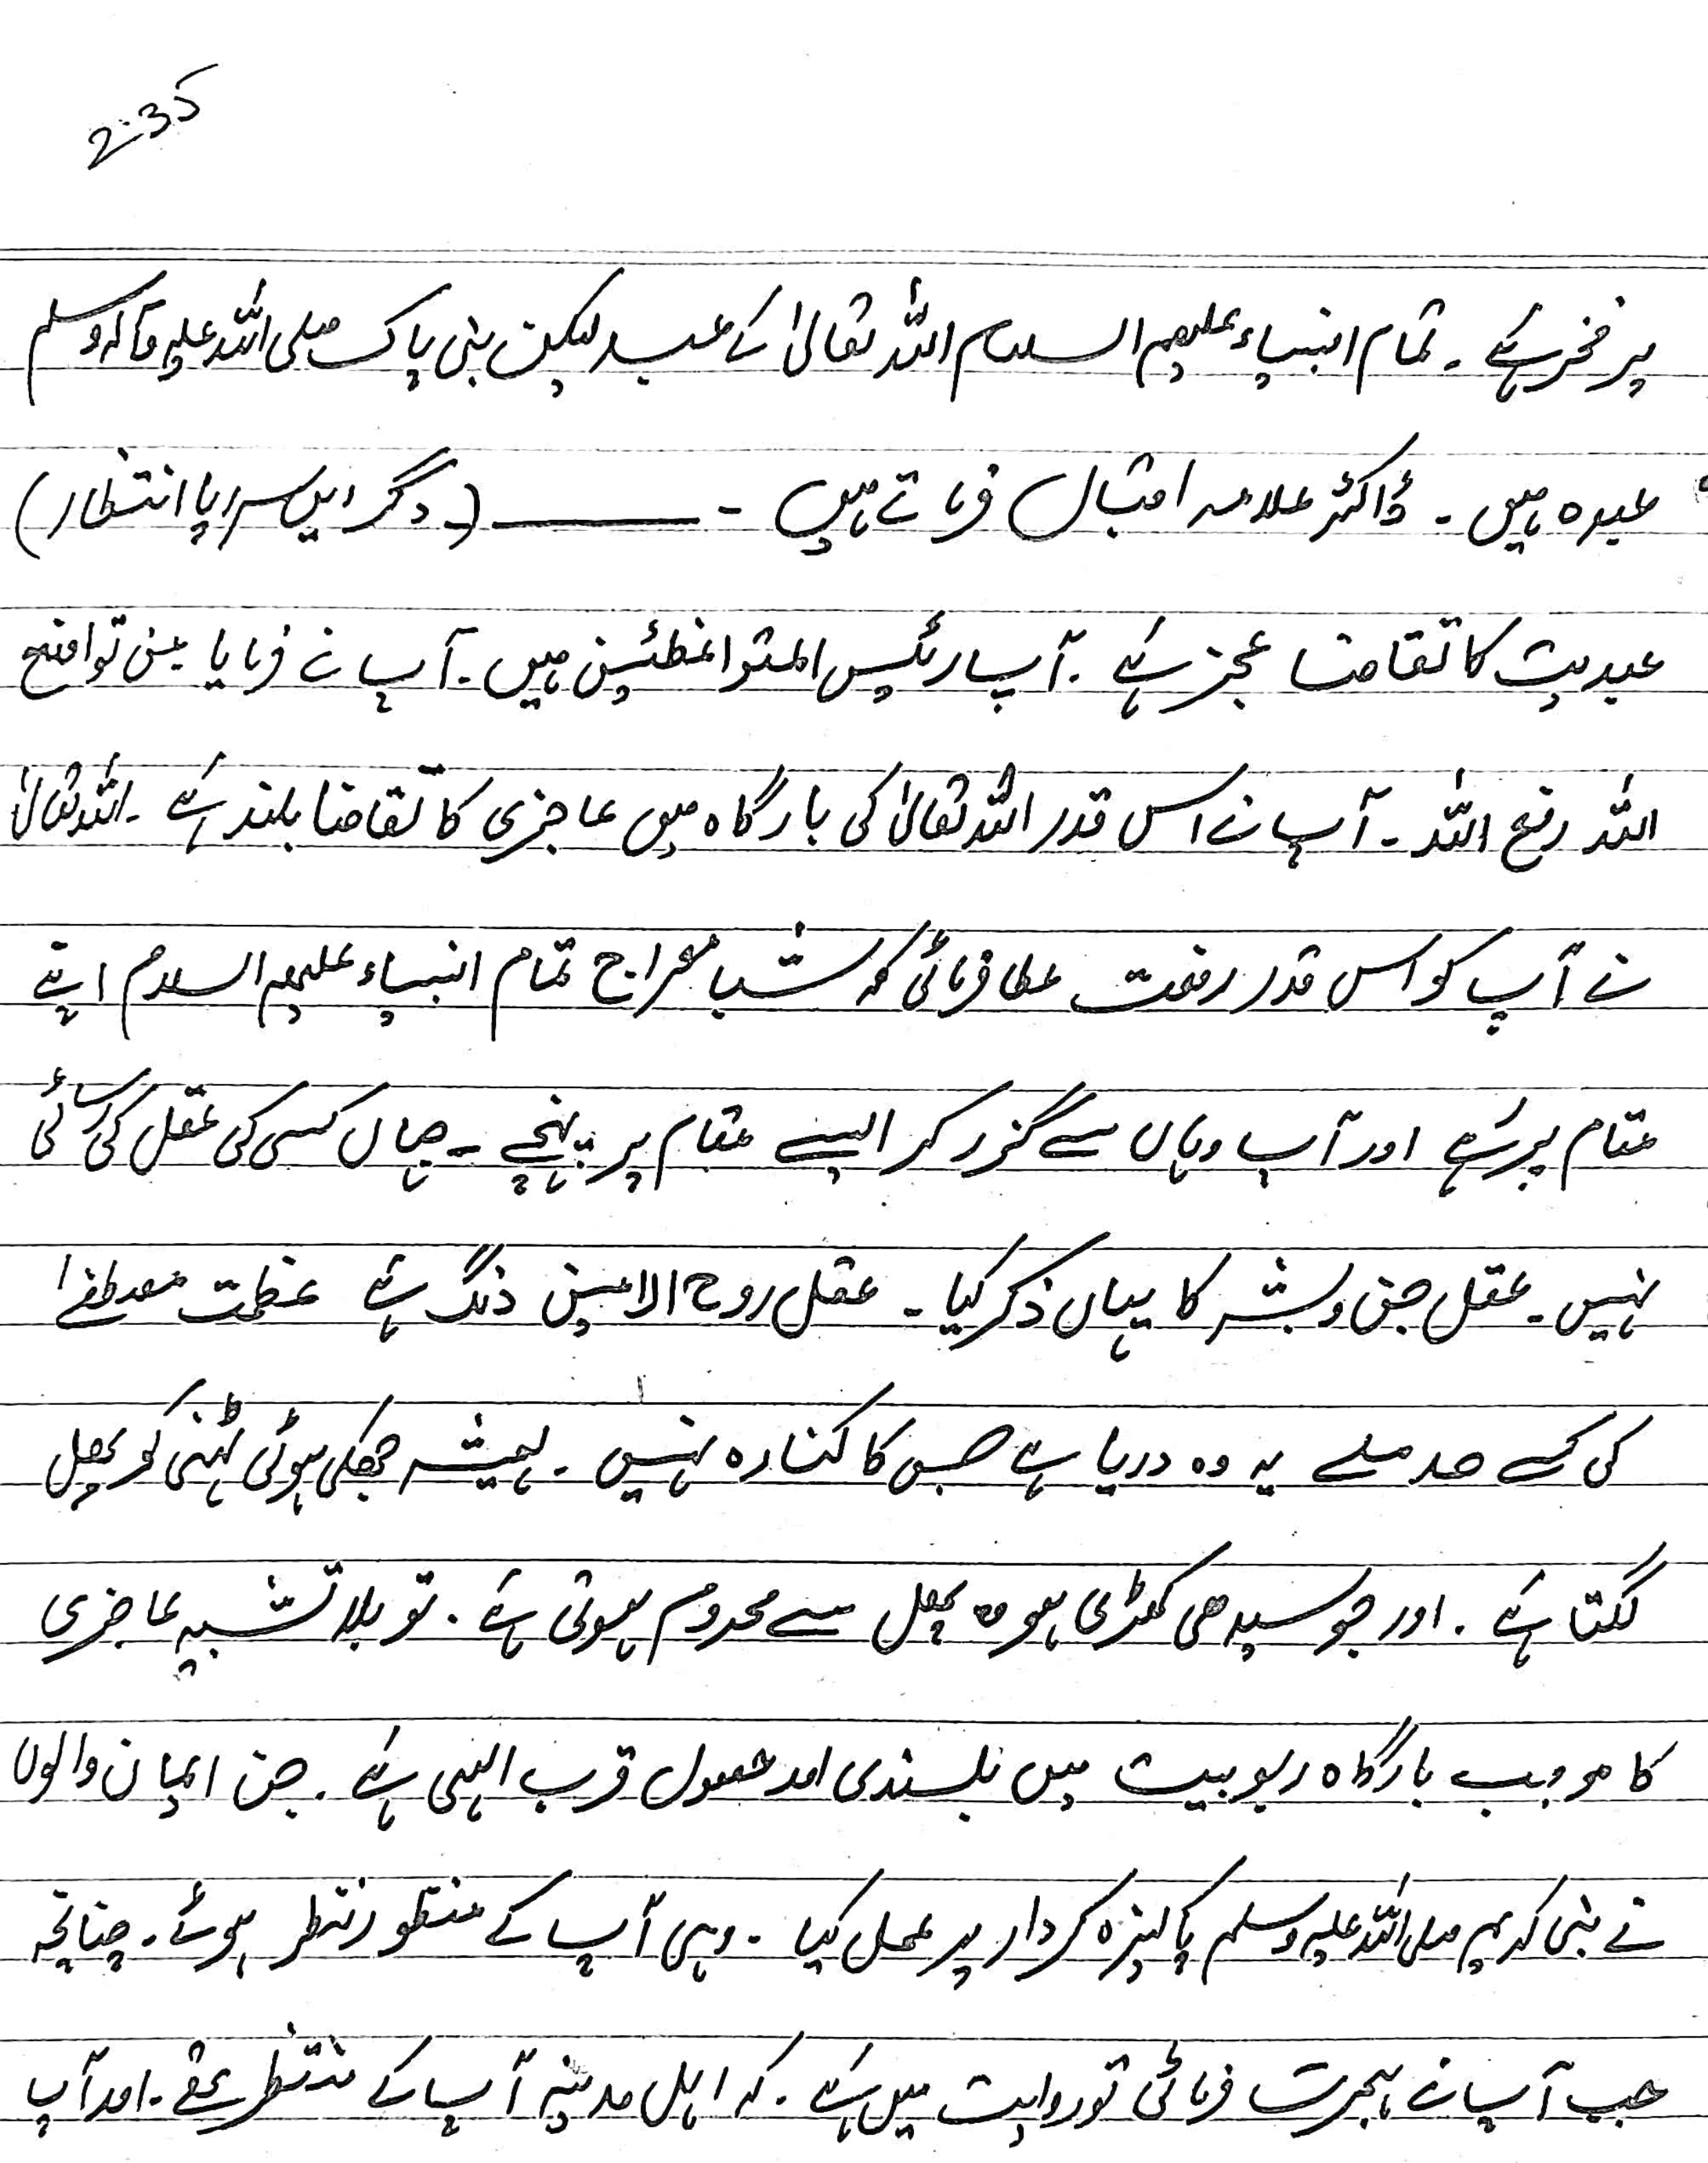 2.35
پر فخر ہے ۔ تمام انبیاء علیھم السلام اللہ تعالیٰ کے عبد لیکن نبی پاک صلی اللہ علیہ وآلہ وسلم
عبدہ ہیں ۔ ڈاکٹر علامہ اقبال فرماتے ہیں ۔ ــــــــــ (دگر ایں سراپا انتظار)
عبدیت کا تقاضا عجز ہے ۔ آپ رئیس المتواضعین ہیں ۔ آپ نے فرمایا من تواضع
اللہ رفع اللہ ۔ آپ نے اس قدر اللہ تعالیٰ کی بارگاہ میں عاجزی کا تقاضا بلند ہے ۔ اللہ تعالیٰ
نے آپ کو اس قدر رفعت عطا فرمائی کہ شب معراج تمام انبیاء علیھم السلام اپنے
مقام پر رہے اور آپ وہاں سے گزر کر ایسے مقام پر پہنچے ۔ جہاں کسی کی عقل کی رسائی
نہیں ۔ عقل جن و بشر کا یہاں ذکر کیا ۔ عقل روح الامین دنگ ہے عظمت مصطفےٰ
کی کسے حد ملے یہ وہ دریا ہے جس کا کنارہ نہیں ۔ ہمیشہ جھکی ہوئی ٹہنی کو پھل
لگتا ہے ۔ اور جو سیدھی کھڑی ہو وہ پھل سے محروم ہوتی ہے ۔ تو بلا تشبیہ عاجزی
کا موجب بارگاہ ربوبیت میں بلندی اور حصول قرب الہی ہے ۔ جن ایمان والوں
نے نبی کریم صلی اللہ علیہ وسلم پاکیزہ کردار پر عمل کیا ۔ وہی آپ کے منظور نظر ہوئے ۔ چنانچہ
جب آپ نے ہجرت فرمائی تو روایت میں ہے ۔ کہ اہل مدینہ آپ کے منتظر تھے ۔ اور آپ